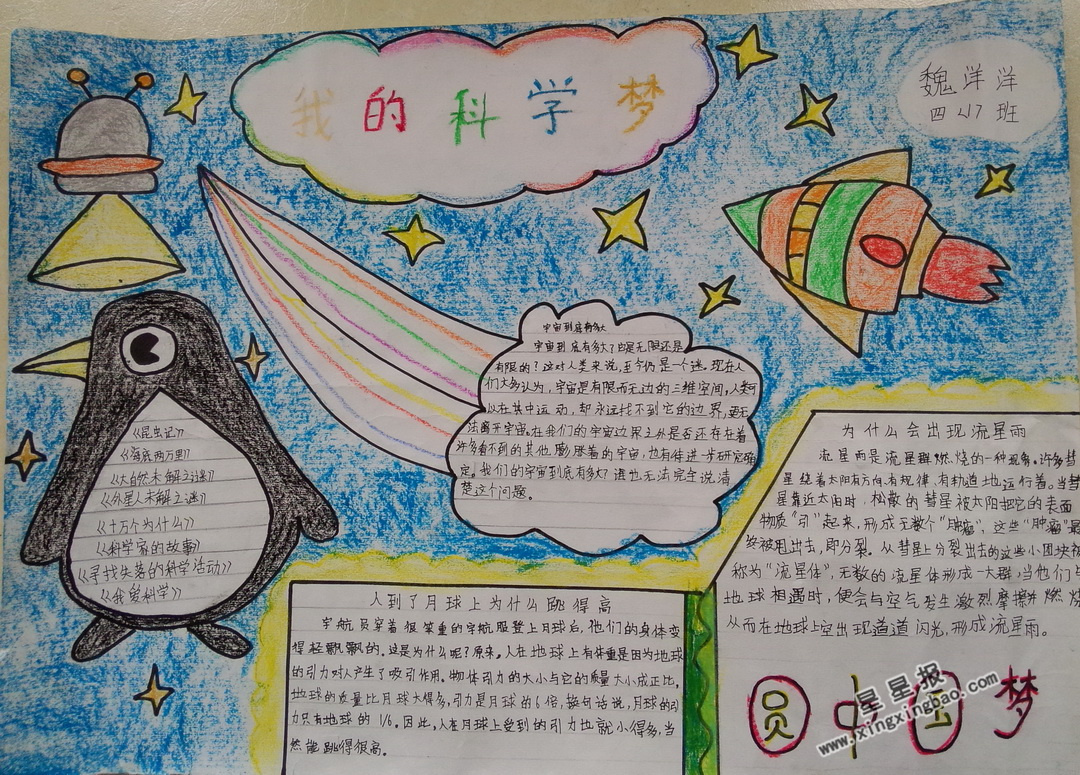 我的科学梦
魏洋洋
四小班
《昆虫记》
《海底两万里》
《大自然未解之谜》
《外星人未解之谜》
《十万个为什么》
《科学家的故事》
《寻找失落的科学活动》
《我爱科学》
宇宙到底有多大
宇宙到底有多大？它是无限还是
有限的？这对人类来说，至今仍是一个迷。现在人
们大多认为，宇宙是有限而无边的三维空间，人类可
以在其中运动，却永远找不到它的边界，更无
法离开宇宙。在我们的宇宙边界之外是否还存在着
许多看不到的其他膨胀着的宇宙，也有待进一步研究确
定。我们的宇宙到底有多大？谁也无法完全说清
楚这个问题。
人到了月球上为什么跳得高
宇航员穿着很笨重的宇航服登上月球后，他们的身体变
得轻飘飘的。这是为什么呢？原来。人在地球上有体重是因为地球
的引力对人产生了吸引作用。物体引力的大小与它的质量大小成正比，
地球的质量比月球大得多，引力是月球的6倍，换句话说，月球的引
力只有地球的1/6。因此，人在月球上受到的引力也就小得多，当
然能跳得很高。
为什么会出现流星雨
流星雨是流星群燃烧的一种现象。许多彗
星绕着太阳有方向、有规律、有轨道地运行着。当彗
星靠近太阳时，松散的彗星被太阳把它的表面
物质“引”起来，形成无数个“肿瘤”，这些“肿瘤”最
终被甩出去，即分裂。从彗星上分裂出去的这些小团块被
称为“流星体”，无数的流星体形成一大群，当他们与
地球相遇时，便会与空气发生激烈摩擦并燃烧
从而在地球上空出现道道闪光，形成流星雨。
圆中国梦
星星报
www.fxingxingbao.com